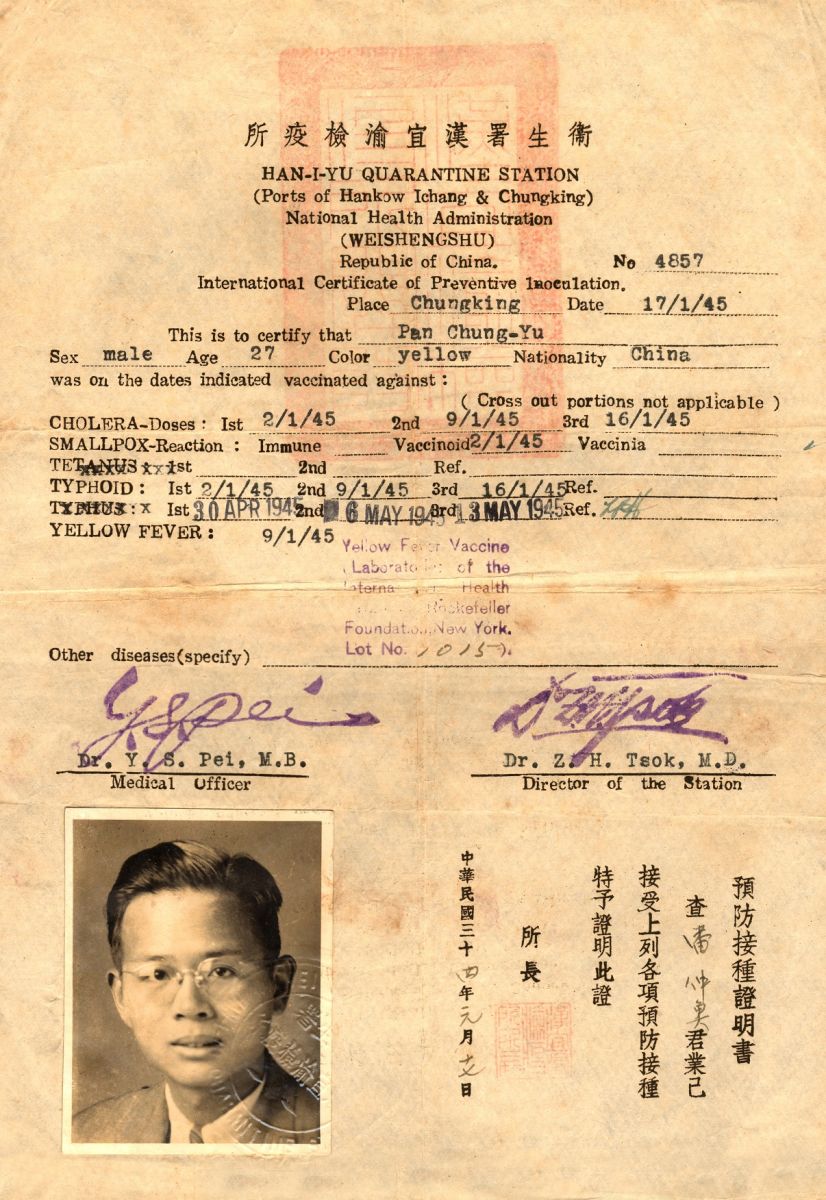 所疫檢渝宜漢署生衛
HAN-I-YU QUARANTINE STATION
(Ports of Hankow Ichang & Chungking)
National Health Administration
(WEISHENGSHU)
Republic of China. No 4857
International Certificate of Preventive Inoculation.
Place Chungking Date 17/1/45
This is to certify that Pan Chung-Yu
Sex male Age 27 Color yellow Nationality China
was on the dates indicated vaccinated against :
( Cross out portions not applicable )
CHOLERA-Doses : Ist 2/1/45 2nd 9/1/45 3rd 16/1/45
SMALLPOX-Reaction : Immune Vaccinoid 2/1/45 Vaccinia
TETANUS : 1st 2nd Ref.
TYPHOID : Ist 2/1/45 2nd 9/1/45 3rd 16/1/45 Ref.
TYPHUS : Ist 30 APR 1945 2nd 6 MAY 1945 3rd 13 MAY 1945 Ref.
YELLOW FEVER : 9/1/45
Yellow Fever Vaccine
Laboratories of the
International Health
Rockefeller
Foundation, New York.
Lot No. 1015
Other diseases(specify)
Y. S. Pei
Dr. Y. S. Pei, M.B.
Medical Officer
Dr. Z. H. Tsok, M.D.
Director of the Station
預防接種證明書
查潘仲魚君業已
接受上列各項預防接種
特予證明此證
所長
中華民國三十四年元月十七日